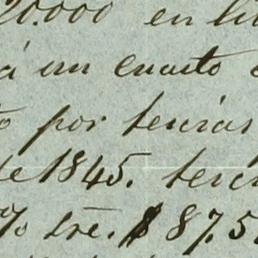 20.000 en
á un cuarto
por tercias
de 1845. terc
% tre. $ 87.5